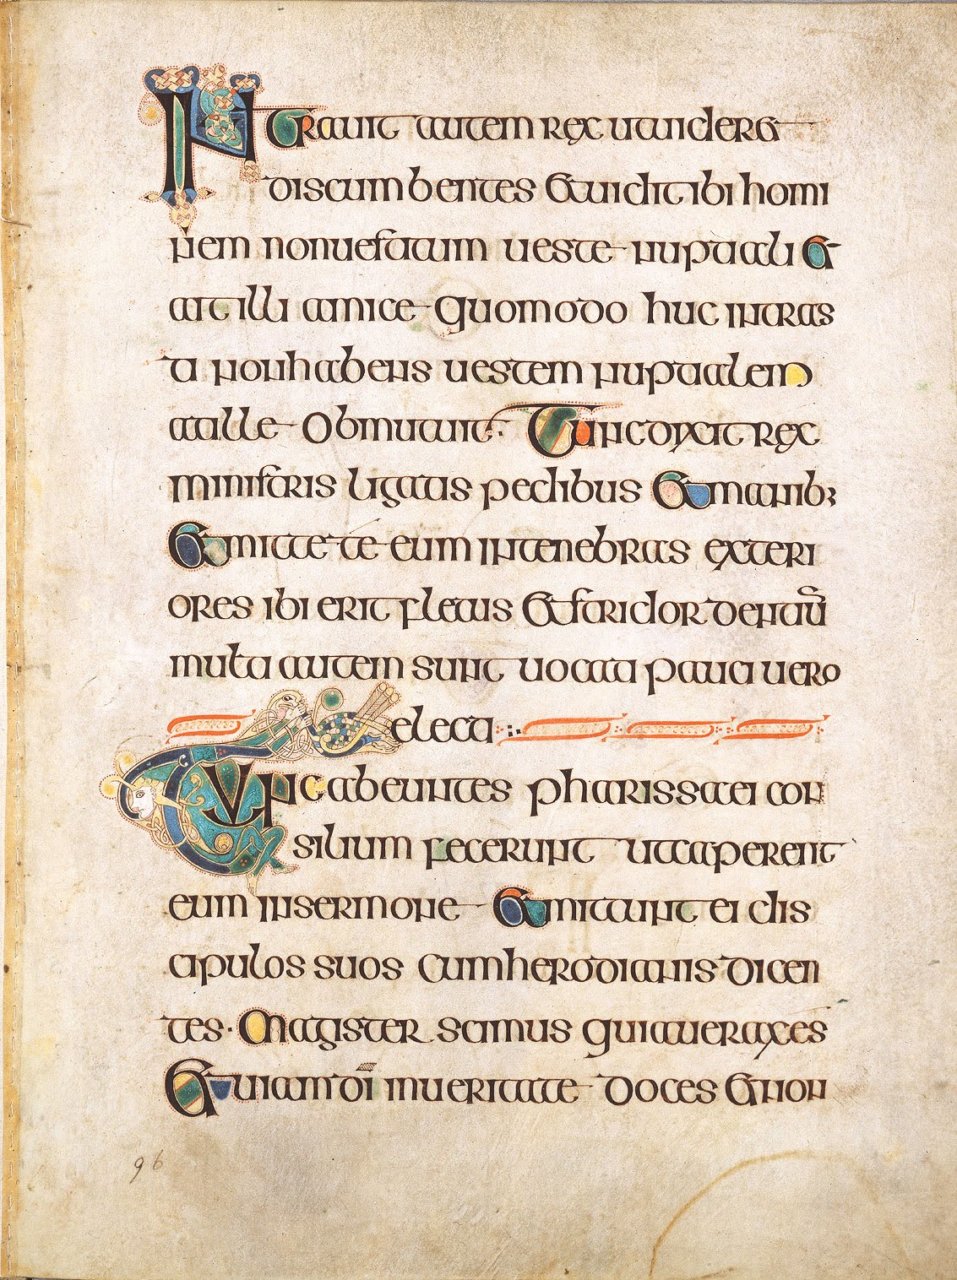 Intrauit autem rex utuideret
discumbentes & uidit ibi homi
nem nonuestitum ueste nuptiali &
ait illi amice quomodo huc intras
ti nonhabens uestem nuptialem
atille obmutuit. Tunc dixit rex
ministris ligatis pedibus & manib;
& mittete eum intenebras exteri
ores ibi erit fletus & stridor dentiū
multi autem sunt uocati pauci uero
electi
Tunc abeuntes pharissaei con
silium fecerunt utcaperent
eum insermone & mittunt ei dis
cipulos suos cumherodianis dicen
tes. magister scimus quia uerax es
& uiam dī inueritate doces & non
96